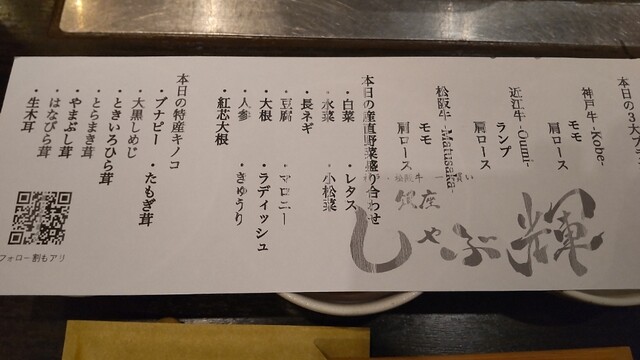 本日の3大ブラ
神戸牛-Kobe-
モモ
肩ロース
近江牛-Oumi-
ランプ
肩ロース
松阪牛-Matusaka-
モモ
肩ロース
本日の産直野菜盛り合わせ
・白菜 ・レタス
・水菜 ・小松菜
・長ネギ
・豆腐 ・マロニー
・大根 ・ラディッシュ
・人参 ・きゅうり
・紅芯大根
本日の特産キノコ
・ブナピー ・たもぎ茸
・大黒しめじ
・ときいろひら茸
・とらまき茸
・やまぶし茸
・はなびら茸
・生木耳
銀座
しゃぶ輝
フォロー割もアリ